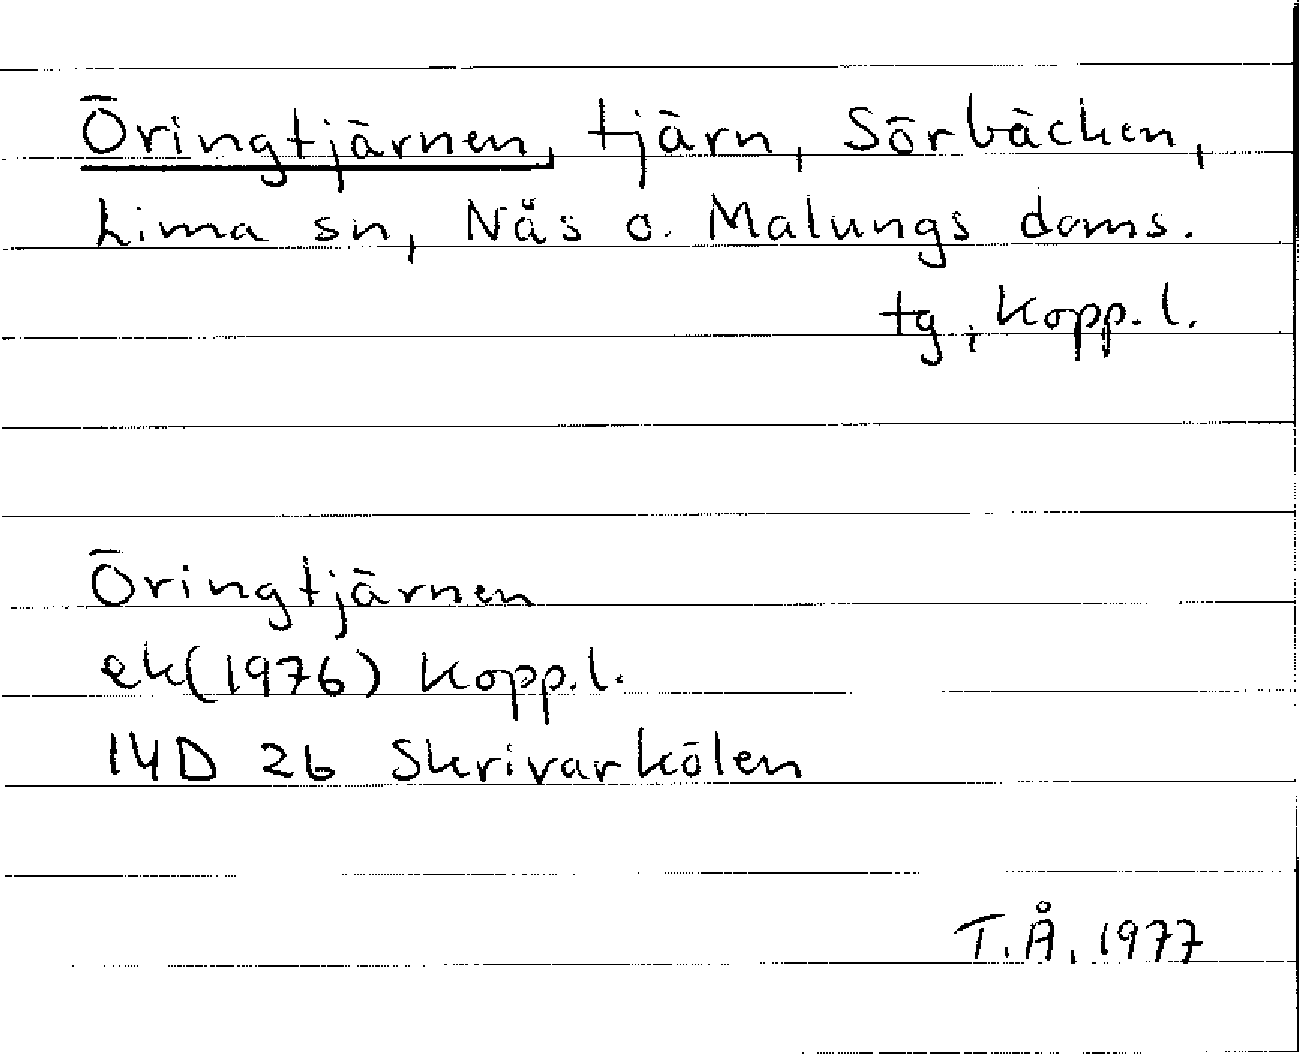 Öringtjärnen, tjärn, Sörbäcken,
Lima sn, Näs o. Malungs doms.
tg, Kopp. l.
Öringtjärnen
ek (1976) Kopp. l.
14D 2b Skrivarkölen
T. Å. 1977